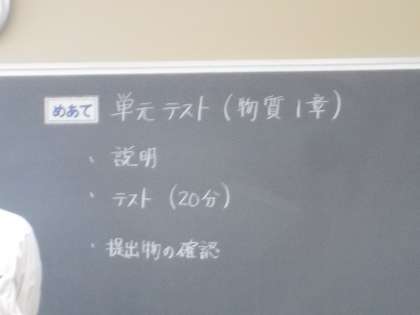 めあて 単元テスト(物質1章)
・説明
・テスト(20分)
・提出物の確認